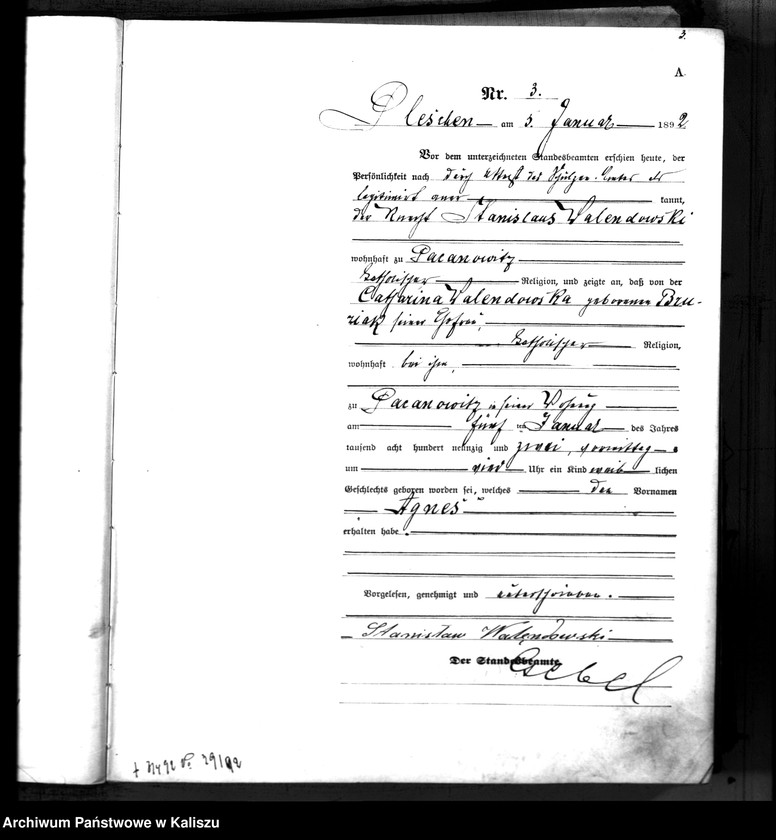 3.
A.
Nr. 3.
Pleschen am 5. Januar 1892.
Vor dem unterzeichneten Standesbeamten erschien heute, der
Persönlichkeit nach durch Attest des Schulzen-Amtes als
legitimirt aner kannt,
der Knecht Stanislaus Walendowski
wohnhaft zu Pacanowitz
katholischer Religion, und zeigte an, daß von der
Catharina Walendowska geborenen Bru-
ziak seiner Ehefrau,
katholischer Religion,
wohnhaft bei ihm,
zu Pacanowitz in seiner Wohnung
am fünf ten Januar des Jahres
tausend acht hundert neunzig und zwei, vormittag
um vier Uhr ein Kind weib lichen
Geschlechts geboren worden sei, welches den Vornamen
Agnes
erhalten habe.
Vorgelesen, genehmigt und unterschrieben.
Stanisław Walendowski
Der Standesbeamte.
29/92
Archiwum Państwowe w Kaliszu